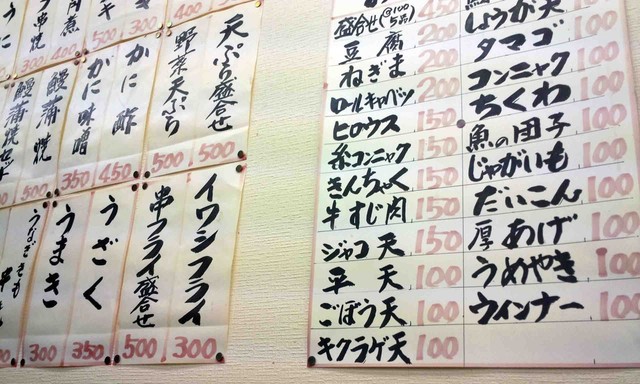 天ぷら盛合せ 500
野菜天ぷら 500
かに酢 450
かに味噌 350
鰻蒲焼 500
鰻蒲焼
イワシフライ 300
串フライ盛合せ 500
うざく 300
うまき 300
うなぎきも串
450
盛合せ(@100 5品)
豆腐 200
ねぎま 200
ロールキャベツ 200
ヒロウス 150
糸コンニャク 150
きんちゃく 150
牛すじ肉 150
ジャコ天 150
平天 100
ごぼう天 100
キクラゲ天 100
しょうが天 100
タマゴ 100
コンニャク 100
ちくわ 100
魚の団子 100
じゃがいも 100
だいこん 100
厚あげ 100
うめやき 100
ウィンナー 100